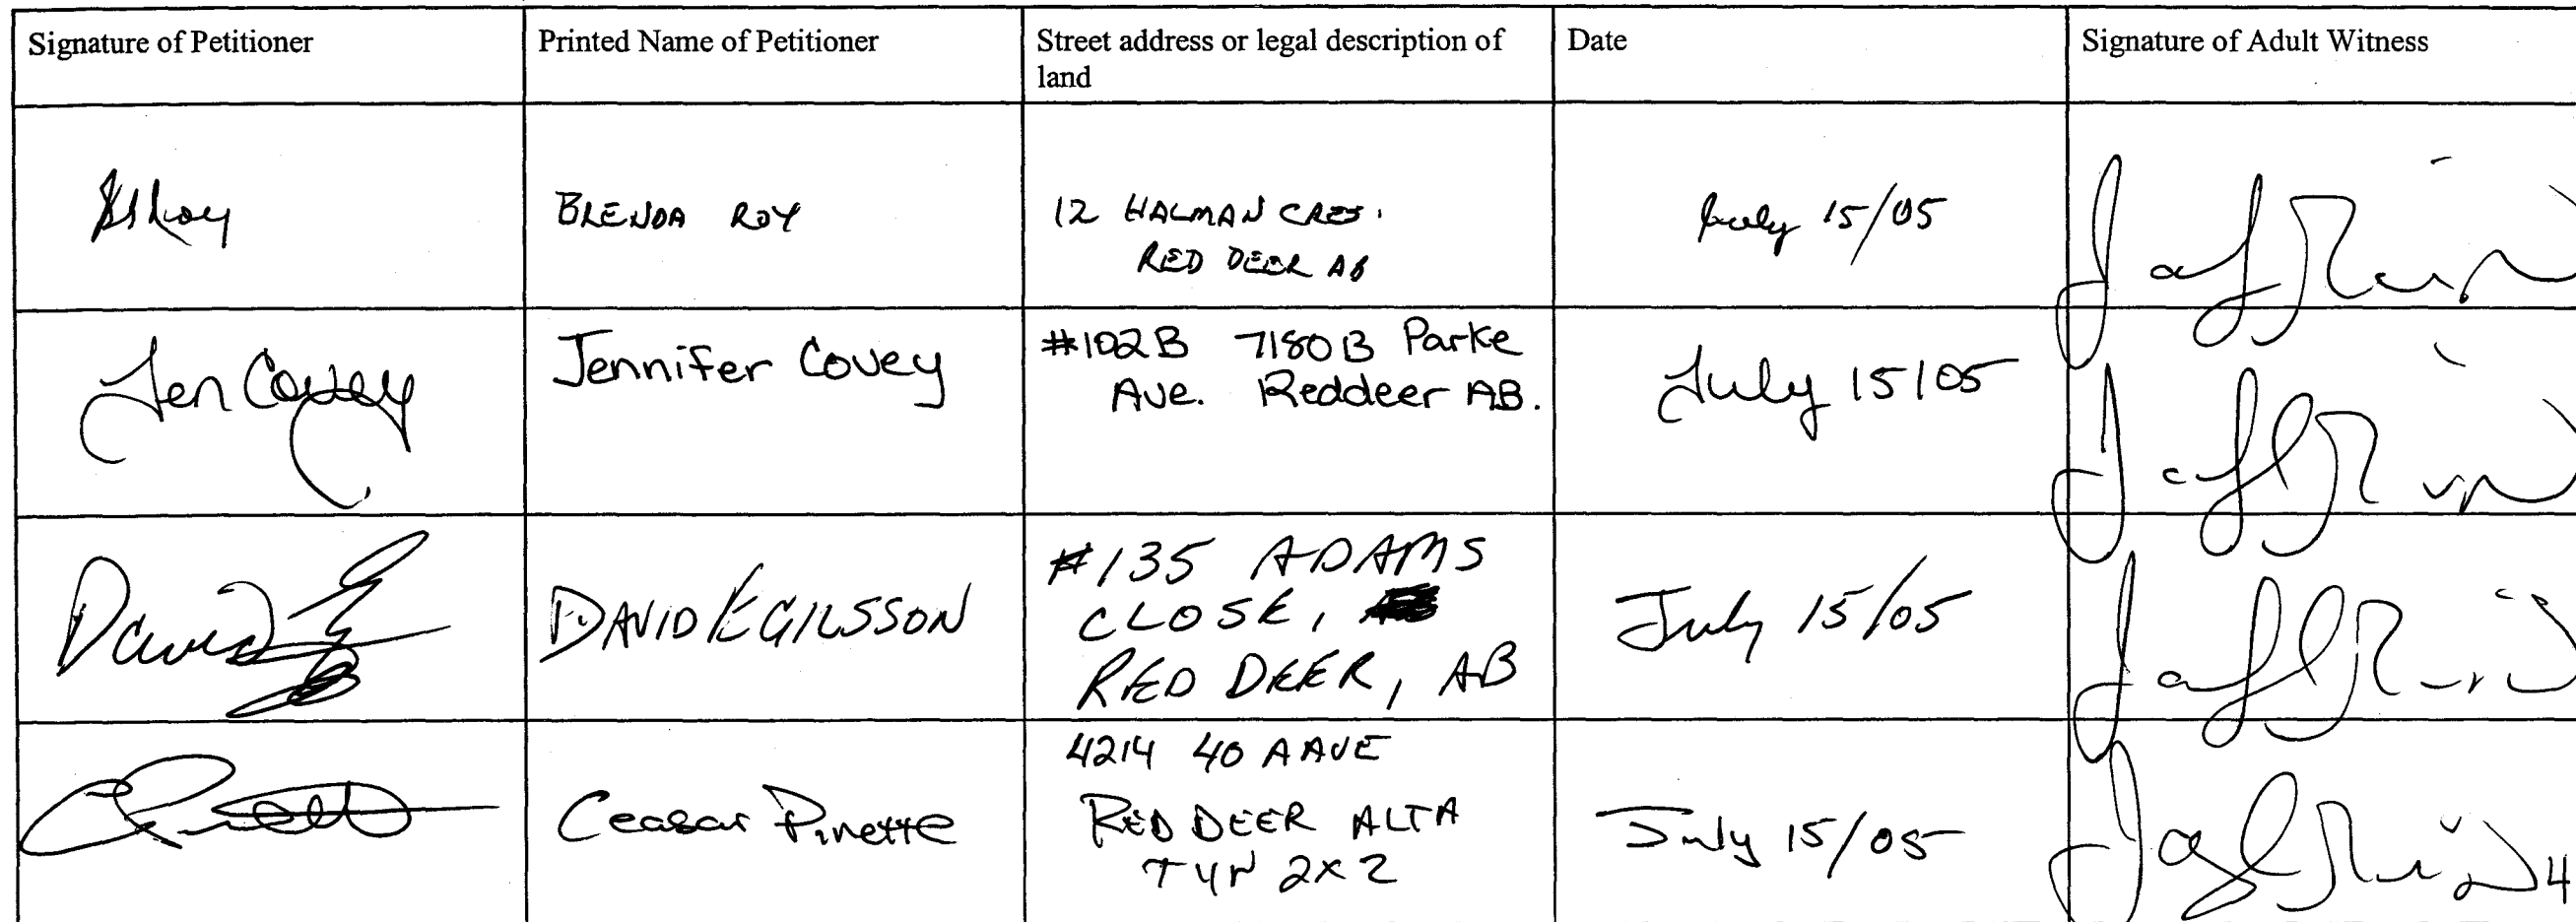 Signature of Petitioner
Printed Name of Petitioner
Street address or legal description of
land
Date
Signature of Adult Witness
BRENDA ROY
12 HALMAN CRES.
RED DEER AB
July 15/05
Jen Covey
Jennifer Covey
#102B 7180B Parke
Ave. Reddeer AB.
July 15/05
David
DAVID EGILSSON
#135 ADAMS
CLOSE,
RED DEER, AB
July 15/05
Ceasar Pinette
4214 40 A AVE
RED DEER ALTA
T4N 2X2
July 15/05
4